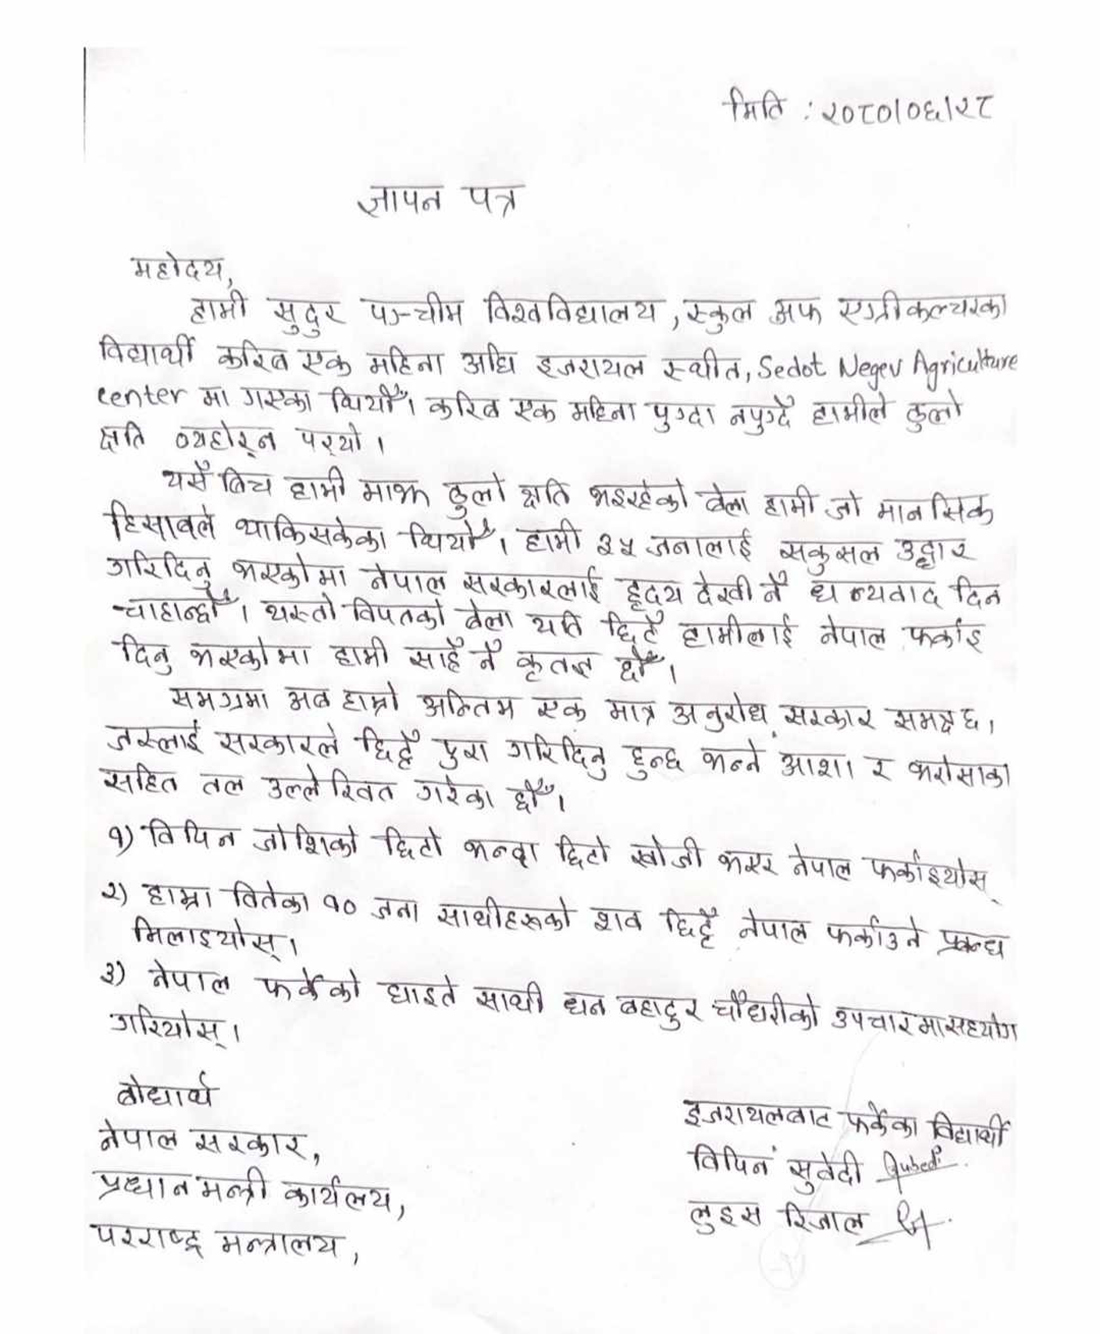 मिति : २०८०।०६।२८
ज्ञापन पत्र
महोदय,
हामी सुदुर पश्चीम विश्वविद्यालय, स्कुल अफ एग्रीकल्चरका
विद्यार्थी करिब एक महिना अघि इजरायल स्थीत, Sedot Negev Agriculture
center मा गएका थियौँ। करिब एक महिना पुग्दा नपुग्दै हामीले ठुलो
क्षति व्यहोर्न पर्‍यो ।
यसै बिच हामी माझ ठुलो क्षति भइरहेको बेला हामी जो मानसिक
हिसाबले थाकिसकेका थियौँ। हामी ३५ जनालाई सकुसल उद्दार
गरिदिनु भएकोमा नेपाल सरकारलाई हृदय देखी नै धन्यवाद दिन
चाहान्छौँ। यस्तो विपतको बेला यति छिटै हामीलाई नेपाल फर्काइ
दिनु भएकोमा हामी साह्रै नै कृतज्ञ छौँ।
समग्रमा अब हाम्रो अन्तिम एक मात्र अनुरोध सरकार समक्ष छ।
जसलाई सरकारले छिट्टै पुरा गरिदिनु हुन्छ भन्ने आशा र भरोसाका
सहित तल उल्लेखित गरेका छौँ।
१) विपिन जोशिको छिटो भन्दा छिटो खोजी भएर नेपाल फर्काइयोस्
२) हाम्रा वितेका १० जना साथीहरूको शव छिट्टै नेपाल फर्काउने प्रबन्ध
मिलाइयोस्।
३) नेपाल फर्केको घाइते साथी धन बहादुर चौधरीको उपचारमा सहयोग
गरियोस्।
बोधार्थ
नेपाल सरकार,
प्रधानमन्त्री कार्यलय,
परराष्ट्र मन्त्रालय,
इजरायलबाट फर्केका विद्यार्थी
विपिन सुवेदी Qubedi
लुइस रिजाल